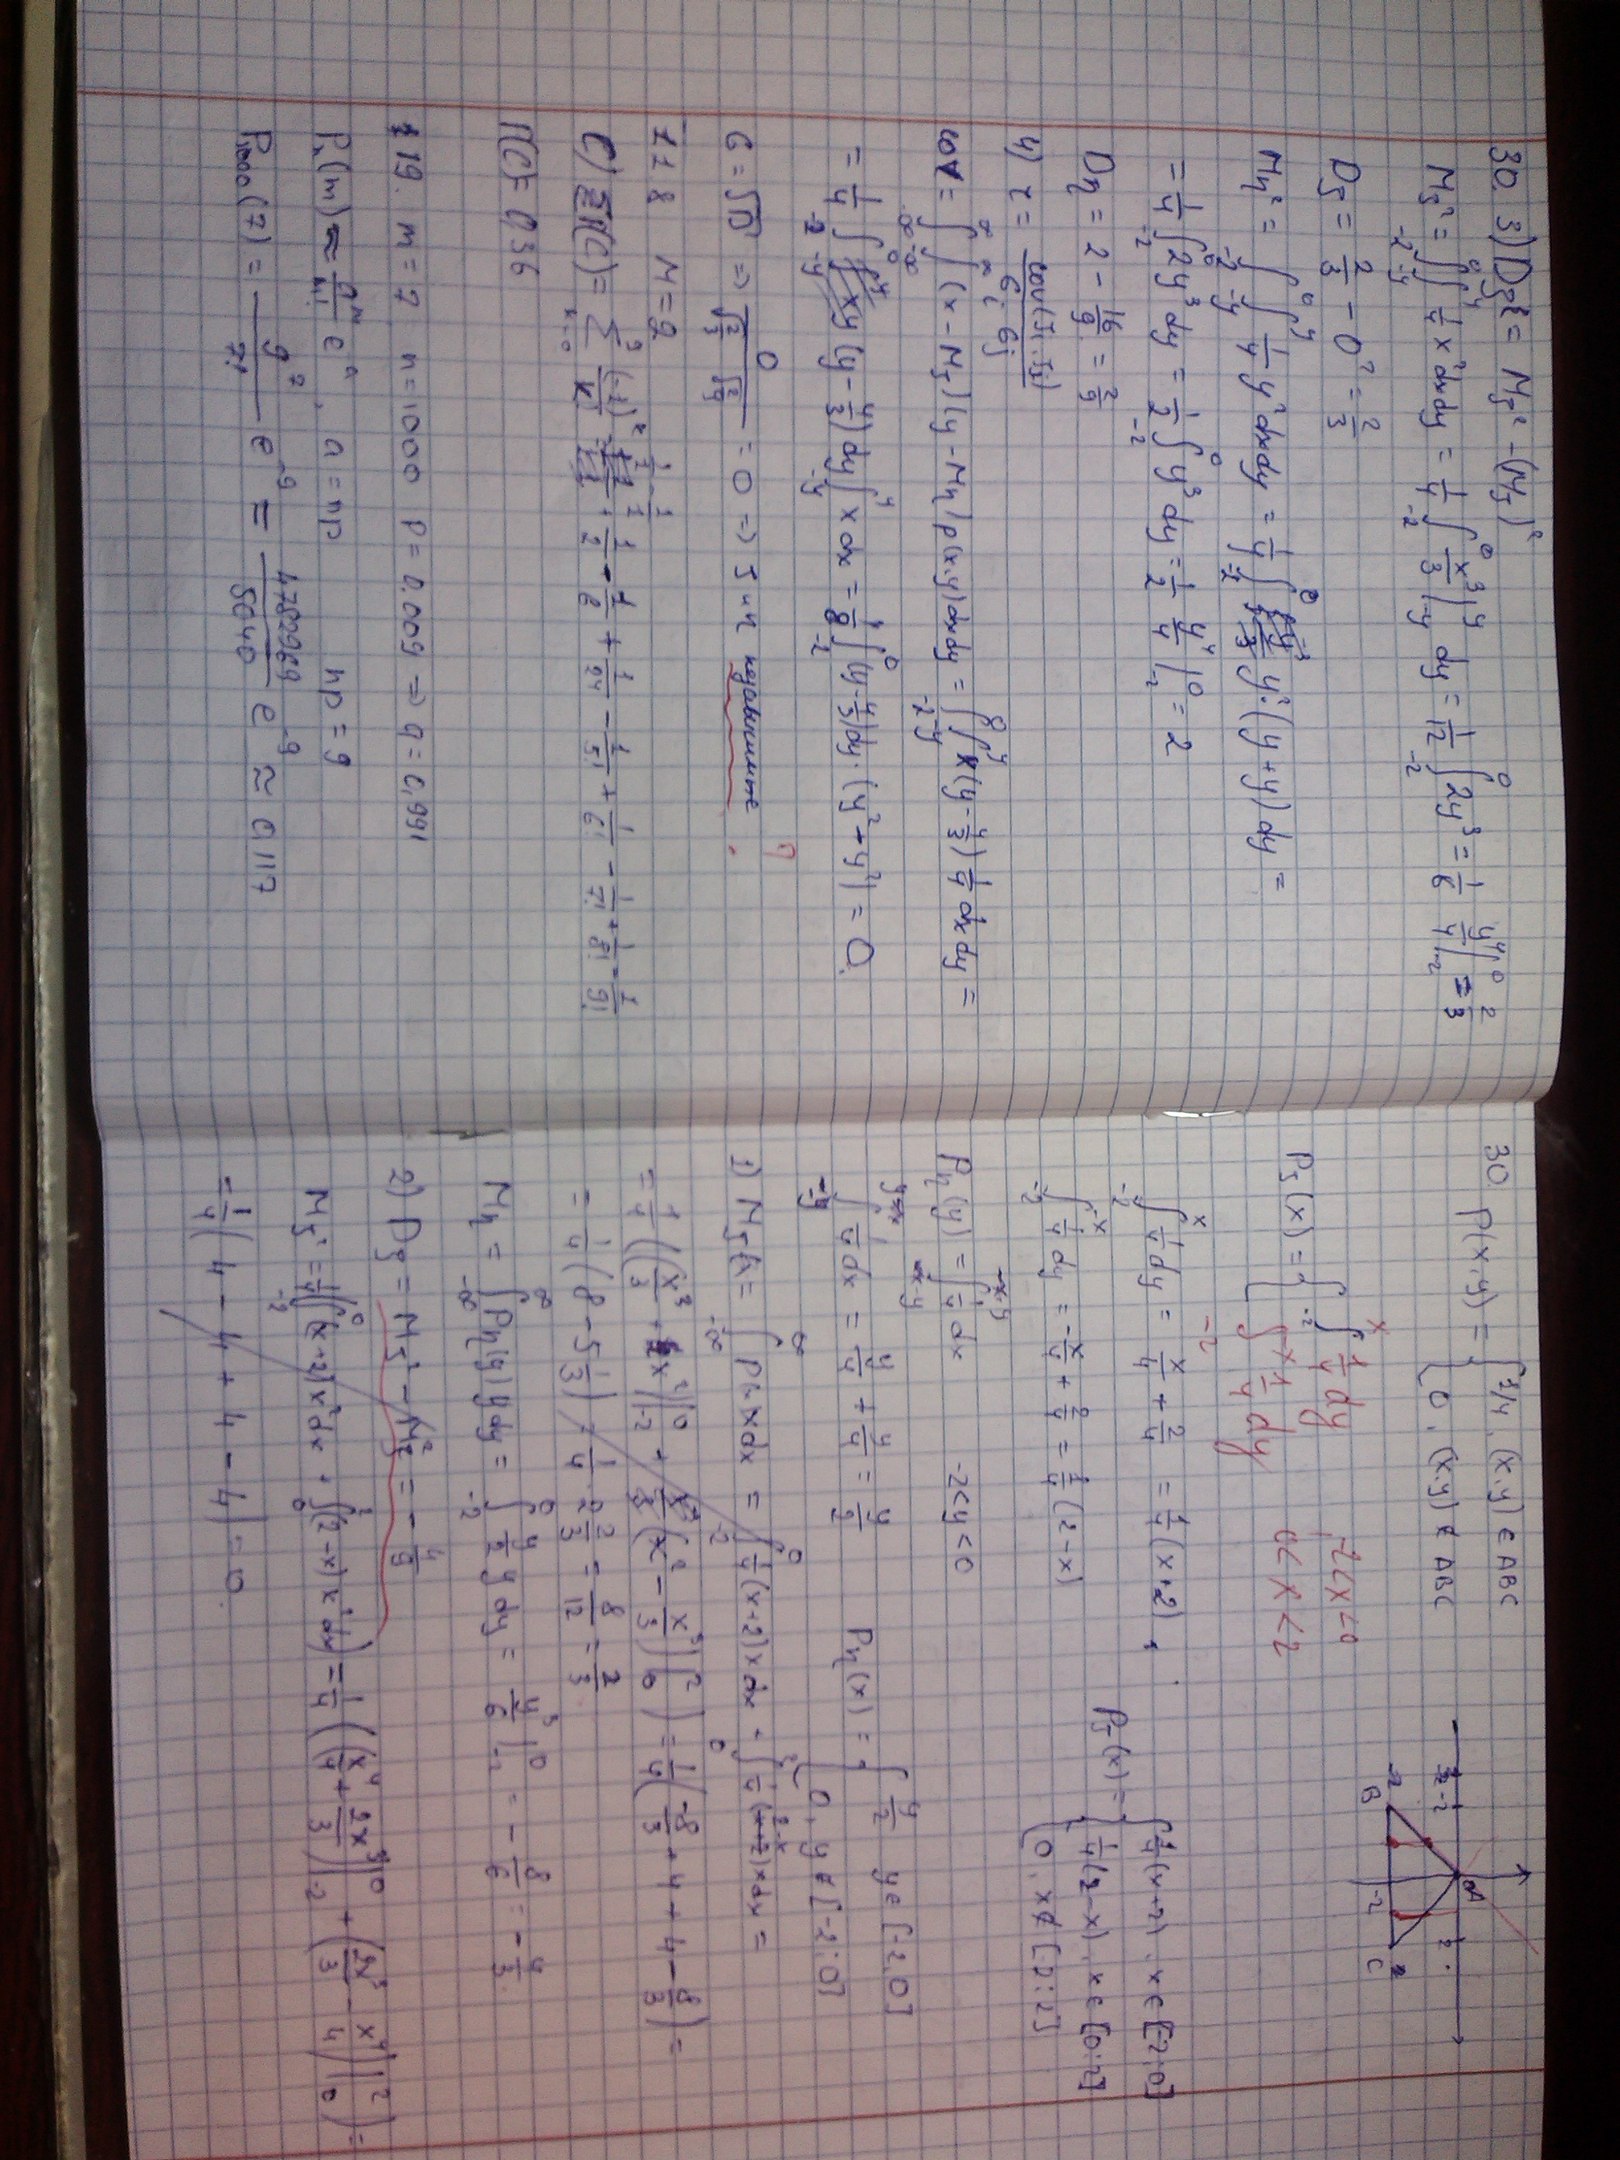 30. 3) Dξ = Mξ² - (Mξ)²
Mξ² = ∫_{-2}^{0} ∫_{-y}^{y} 1/4 x² dx dy = 1/4 ∫_{-2}^{0} x³/3 |_{-y}^{y} dy = 1/12 ∫_{-2}^{0} 2y³ = 1/6 y⁴/4 |_{-2}^{0} = 2/3
Dξ = 2/3 - 0² = 2/3
Mη² = ∫_{-2}^{0} ∫_{-y}^{y} 1/4 y² dx dy = 1/4 ∫_{-2}^{0} y²·(y+y) dy =
= 1/4 ∫_{-2}^{0} 2y³ dy = 1/2 ∫_{-2}^{0} y³ dy = 1/2 y⁴/4 |_{-2}^{0} = 2
Dη = 2 - 16/9 = 2/9
4) r = cov(ξi, ξj) / (σi σj)
cov = ∫_{-∞}^{∞} ∫_{-∞}^{∞} (x - Mξ)(y - Mη) p(x,y) dx dy = ∫_{-2}^{0} ∫_{-y}^{y} x(y - 4/3) 1/4 dx dy =
= 1/4 ∫_{-2}^{0} (y - 4/3) dy ∫_{-y}^{y} x dx = 1/8 ∫_{-2}^{0} (y - 4/3) dy · (y² - y²) = 0.
σ = √D ⇒ 0 / (√(2/3) √(2/9)) = 0 ⇒ ξ и η независимые ?
118 M = 9
C) P(C) = Σ_{k=0}^{9} (-1)^k / k! = 1/1 - 1/1 + 1/2 - 1/6 + 1/24 - 1/5! + 1/6! - 1/7! + 1/8! - 1/9!
P(C) = 0,36
19. m = 7 n = 1000 p = 0.009 ⇒ q = 0,991
Pn(m) ≈ a^m/m! e^a, a = np np = 9
P1000(7) = 9⁷/7! e^{-9} = 4782969/5040 e^{-9} ≈ 0,117
30. p(x,y) = { 1/4, (x,y) ∈ ABC
0, (x,y) ∉ ABC
A
-2 2
-2 B -2 C 2
Pξ(x) = { ∫_{-2}^{x} 1/4 dy , -2 < x < 0
∫_{-2}^{-x} 1/4 dy 0 < x < 2
∫_{-2}^{x} 1/4 dy = x/4 + 2/4 = 1/4 (x+2),
∫_{-2}^{-x} 1/4 dy = -x/4 + 2/4 = 1/4 (2-x)
Pξ(x) = { 1/4(x+2), x ∈ [-2;0]
1/4(2-x), x ∈ [0;2]
0, x ∉ [-2;2]
Pη(y) = ∫_{-y}^{y} 1/4 dx -2 < y < 0
∫_{-y}^{y} 1/4 dx = y/4 + y/4 = y/2
Pη(x) = { y/2 y ∈ [-2,0]
0, y ∉ [-2;0]
1) Mξ = ∫_{-∞}^{∞} P(x)x dx = ∫_{-2}^{0} 1/4 (x+2) x dx + ∫_{0}^{2} 1/4 (2-x) x dx =
= 1/4 ((x³/3 + x²)|_{-2}^{0} + (x² - x³/3)|_{0}^{2}) = 1/4 (-8/3 + 4 + 4 - 8/3) =
= 1/4 (8 - 5 1/3) = 1/4 · 2 2/3 = 8/12 = 2/3
Mη = ∫_{-∞}^{∞} Pη(y) y dy = ∫_{-2}^{0} y/2 y dy = y³/6 |_{-2}^{0} = - 8/6 = - 4/3.
2) Dξ = Mξ² - Mξ² = - 4/9
Mξ² = 1/4 (∫_{-2}^{0} (x+2) x² dx + ∫_{0}^{2} (2-x) x² dx) = 1/4 ((x⁴/4 + 2x³/3)|_{-2}^{0} + (2x³/3 - x⁴/4)|_{0}^{2}) =
= 1/4 (4 - 4 + 4 - 4) = 0.